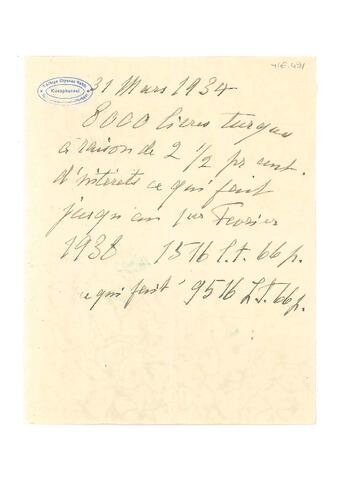 YE.491
Türkiye Diyanet Vakfı
Kütüphanesi
31 Mars 1934
8000 livres turques
à raison de 2 1/2 pr cent.
d'intérêts ce qui fait
jusqu'au 1er Fevrier
1938 1516 L.T. 66 p.
ce qui fait 9516 L.T. 66 p.